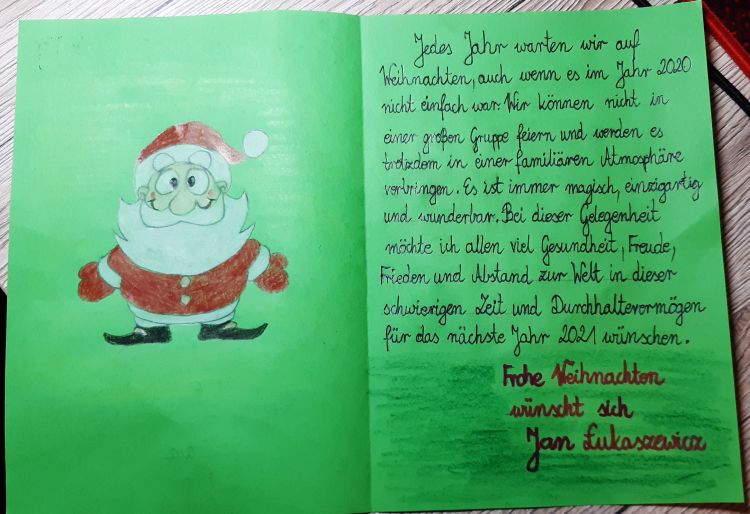 Jedes Jahr warten wir auf
Weihnachten, auch wenn es im Jahr 2020
nicht einfach war. Wir können nicht in
einer großen Gruppe feiern und werden es
trotzdem in einer familiären Atmosphäre
verbringen. Es ist immer magisch, einzigartig
und wunderbar. Bei dieser Gelegenheit
möchte ich allen viel Gesundheit, Freude,
Frieden und Abstand zur Welt in dieser
schwierigen Zeit und Durchhaltevermögen
für das nächste Jahr 2021 wünschen.
Frohe Weihnachten
wünscht sich
Jan Łukaszewicz